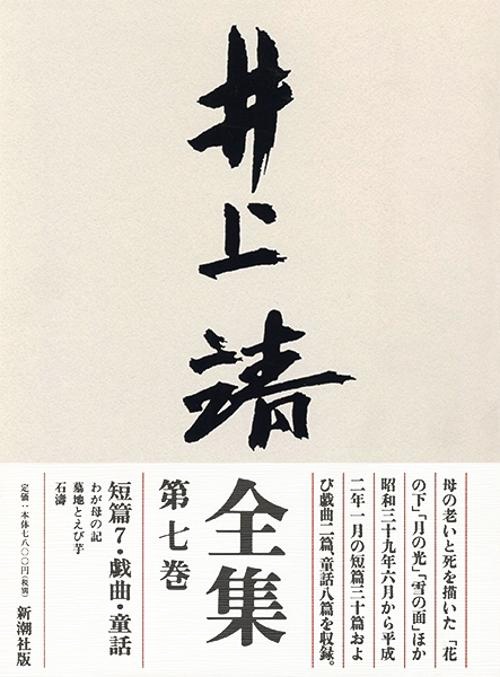 井上靖
母の老いと死を描いた「花
の下」「月の光」「雪の面」ほか
昭和三十九年六月から平成
二年一月の短篇三十篇およ
び戯曲二篇、童話八篇を収録。
全集
第七巻
短篇7・戯曲・童話
わが母の記
墓地とえび芋
石濤
定価：本体七八〇〇円（税別）
新潮社版